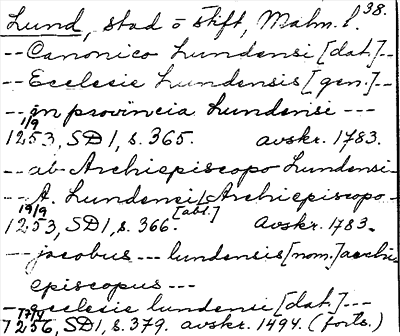 Lund, stad o stift, Malm. l. 38.
-- Canonico Lundensi [dat.] --
-- Ecclesie Lundensis [gen.] --
-- in provincia Lundensi ---
1/9 1253, SD 1, s. 365. avskr. 1783.
-- ab Archiepiscopo Lundensi --
-- A. Lundensi Archiepiscopo -- [abl.]
19/9 1253, SD 1, s. 366. avskr. 1783.
-- jacobus --- lundensis [nom.] archi
episcopus ---
-- ecclesie lundensi [dat.] ---
17/4 1256, SD 1, s. 379. avskr. 1494. (forts.)